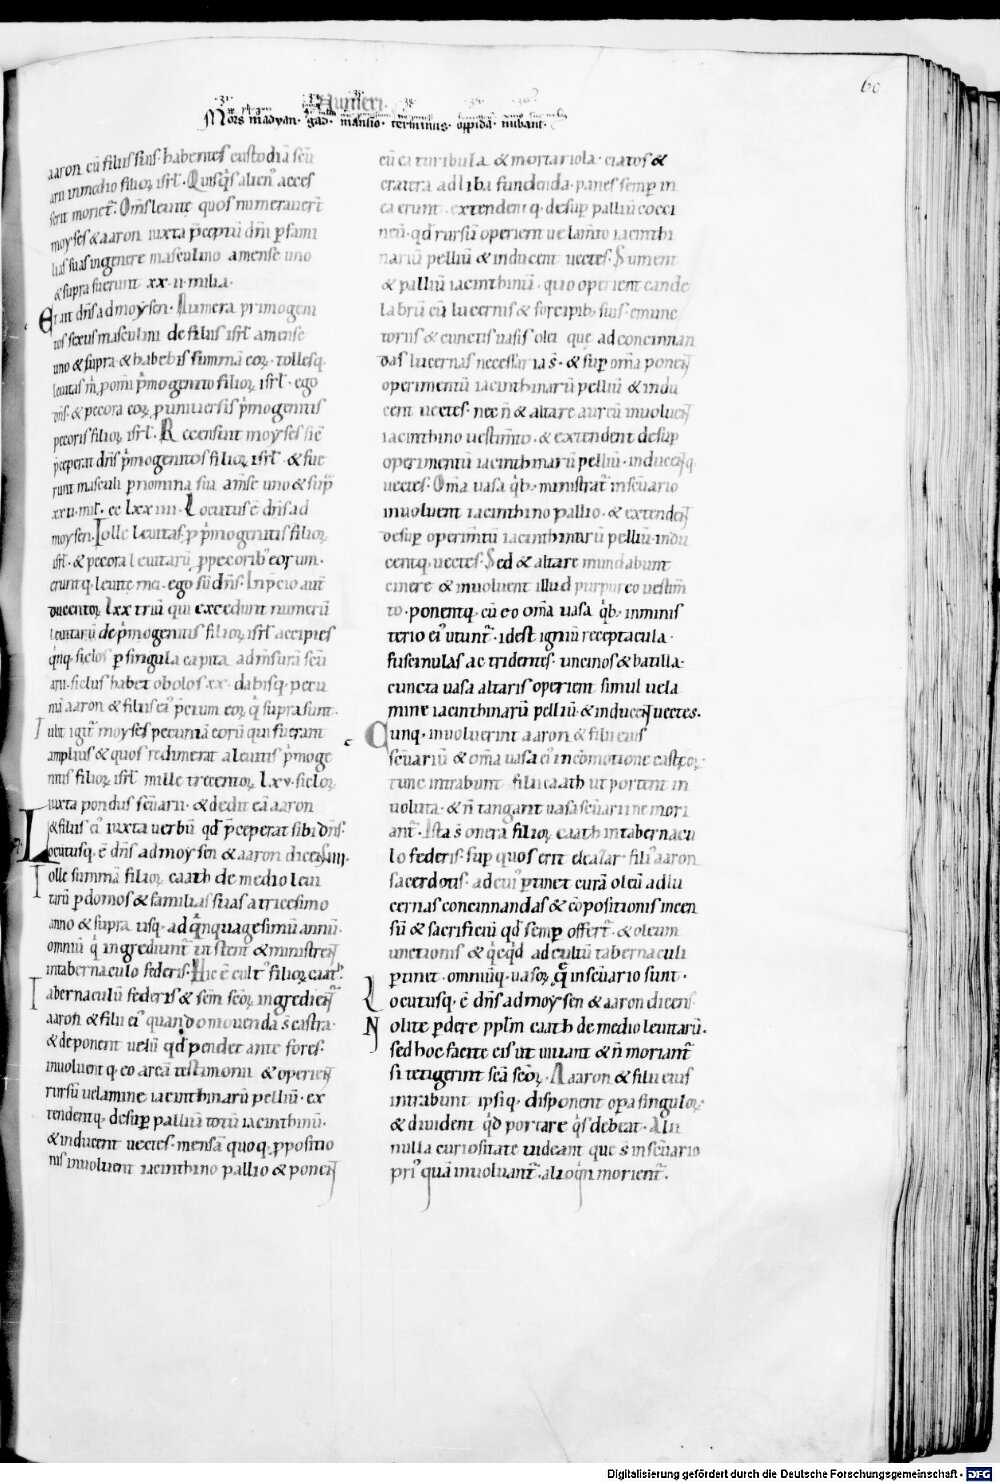 Numeri.
Mors madyan· gad· mansio· terminus· oppida· nubant·
60
aaron cū filiis suis· habentes custodiā scū
arii in medio filioꝝ isrl̄· Quisq̄s alien᷒ acces
serit moriet᷒· Om̄s leuite quos numerauer̄t
moyses & aaron iuxta p̄ceptū dn̄i p̱ fami
lias suas in genere masculino a mense uno
& supra fuerunt xx·ii milia·
Et ait dn̄s ad moysen· Numera primogeni
tos sexus masculini de filiis isrl̄ a mense
uno & supra· & habebis summā eoꝝ· tollesq·
leuitas m̍ p̱ om̄i p̍mogenito filioꝝ isrl̄· ego
dn̄s· & pecora eoꝝ p̱ uniuersis p̍mogenitis
pecoris filioꝝ isrl̄· Recensuit moyses sic̄
p̄ceperat dn̄s p̍mogenitos filioꝝ isrl̄· & fue
runt masculi p̱ nomina sua a m̄se uno & sup̱
xxii·mil̄· cc lxxiii· Locutus ē dn̄s ad
moysen· Tolle leuitas p̱ p̍mogenitis filioꝝ
isrl̄· & pecora leuitarū p̱ pecorib᷒ eorum·
eruntq· leuite mei· ego sū dn̄s· In p̄cio aut̄
ducentoꝝ lxx triū qui excedunt numerū
leuitarū de p̍mogenitis filioꝝ isrl̄ accipies
q̍nq· siclos p̱ singula capita ad m̄surā scū
arii· siclus habet obolos xx· dabisq· pecu
niā aaron & filiis ei᷒ p̄cium eoꝝ q̍ supra sunt·
Tulit igit᷒ moyses pecuniā eorū qui fuerant
amplius & quos redimerat a leuitis p̍moge
nitis filioꝝ isrl̄ mille trecentoꝝ lxv· sicloꝝ
iuxta pondus scūarii· & dedit eā aaron
& filiis ei᷒ iuxta uerbū qd̄ p̄ceperat sibi dn̄s·
Locutusq· ē dn̄s ad moysen & aaron dicens· IIII·
Tolle summā filioꝝ caath de medio leui
tarū p̱ domos & familias suas a tricesimo
anno & supra usq· ad q̍nquagesimū annū·
omniū q̍ ingrediunt᷒ ut stent & ministrent
in tabernaculo federis· Hic ē cult᷒ filioꝝ caath·
Tabernaculū federis & sc̄m sc̄oꝝ ingredient᷒
aaron & filii ei᷒ quando mouenda s̄ castra·
& deponent uelū qd̄ pendet ante fores·
inuoluentq· eo arcā testimonii & operient
rursū uelamine iacinthinarū pelliū· ex
tendentq· desup̱ palliū totū iacinthinū·
& inducent uectes· mensā quoq· p̱positio
nis inuoluent iacinthino pallio & ponent
cū ea turibula & mortariola· ciatos &
cratera ad liba fundenda· panes semp̱ in
ea erunt· extendentq· desup̱ palliū cocci
neū· qd̄ rursū operient uelam̄to iacinthi
nariū pelliū & inducent uectes· Sument
& palliū iacinthinū· quo operient cande
labrū cū lucernis & forcipib᷒ suis· emunc
toriis & cunctis uasis olei que ad concinnan
das lucernas necessaria s̄· & sup̱ om̄ia ponent
operimentū iacinthinarū pelliū & indu
cent uectes· nec n̄ & altare aureū inuoluent
iacinthino uestim̄to· & extendent desup̱
operimentū iacinthinarū pelliū· inducentq·
uectes· Om̄a uasa q̍b᷒ ministrat᷒ in scūario
inuoluent iacinthino pallio· & extendent
desup̱ operim̄tū iacinthinarū pelliū· indu
centq· uectes· Sed & altare mundabunt
cinere & inuoluent illud purpureo uestim̄
to· ponentq· cū eo om̄a uasa q̍b᷒ in minis
terio ei᷒ utunt᷒· id est igniū receptacula·
fuscinulas ac tridentes· uncinos & batilla·
cuncta uasa altaris operient simul uela
mine iacinthinarū pelliū· & inducent uectes·
Cunq· inuoluerint aaron & filii eius
scūariū & om̄a uasa ei᷒ in cōmotione castroꝝ·
tunc intrabunt filii caath ut portent in
uoluta· & n̄ tangant uasa scūarii ne mori
ant᷒· Ista s̄ onera filioꝝ caath in tabernacu
lo federis· sup̱ quos erit eleazar fili᷒ aaron
sacerdotis· ad cui᷒ p̱tinet curā oleū ad lu
cernas concinnandas & cōpositionis incen
sū & sacrificiū qd̄ semp̱ offert᷒· & oleum
unctionis & q̍cq̍d ad cultū tabernaculi
p̱tinet· omniūq· uasoꝝ que in scūario sunt·
Locutusq· ē dn̄s ad moysen & aaron dicens·
Nolite p̱dere pp̱lm caath de medio leuitarū·
sed hoc facite eis ut uiuant & n̄ moriant᷒
si tetigerint sc̄a sc̄oꝝ· Aaaron & filii eius
intrabunt ipsiq· disponent opa singuloꝝ·
& diuident q̍d portare q̍s debeat· Alii
nulla curiositate uideant que s̄ in scūario
pri᷒ quā inuoluant᷒· alioq̍n morient᷒·
Digitalisierung gefördert durch die Deutsche Forschungsgemeinschaft - DFG